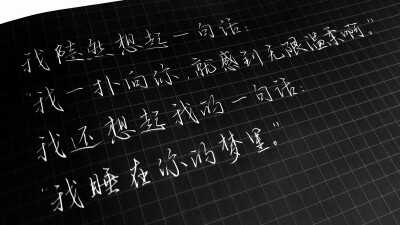 我陡然想起一句话：
“我一扑向你，就感到无限温柔啊。”
我还想起我的一句话：
“我睡在你的梦里。”